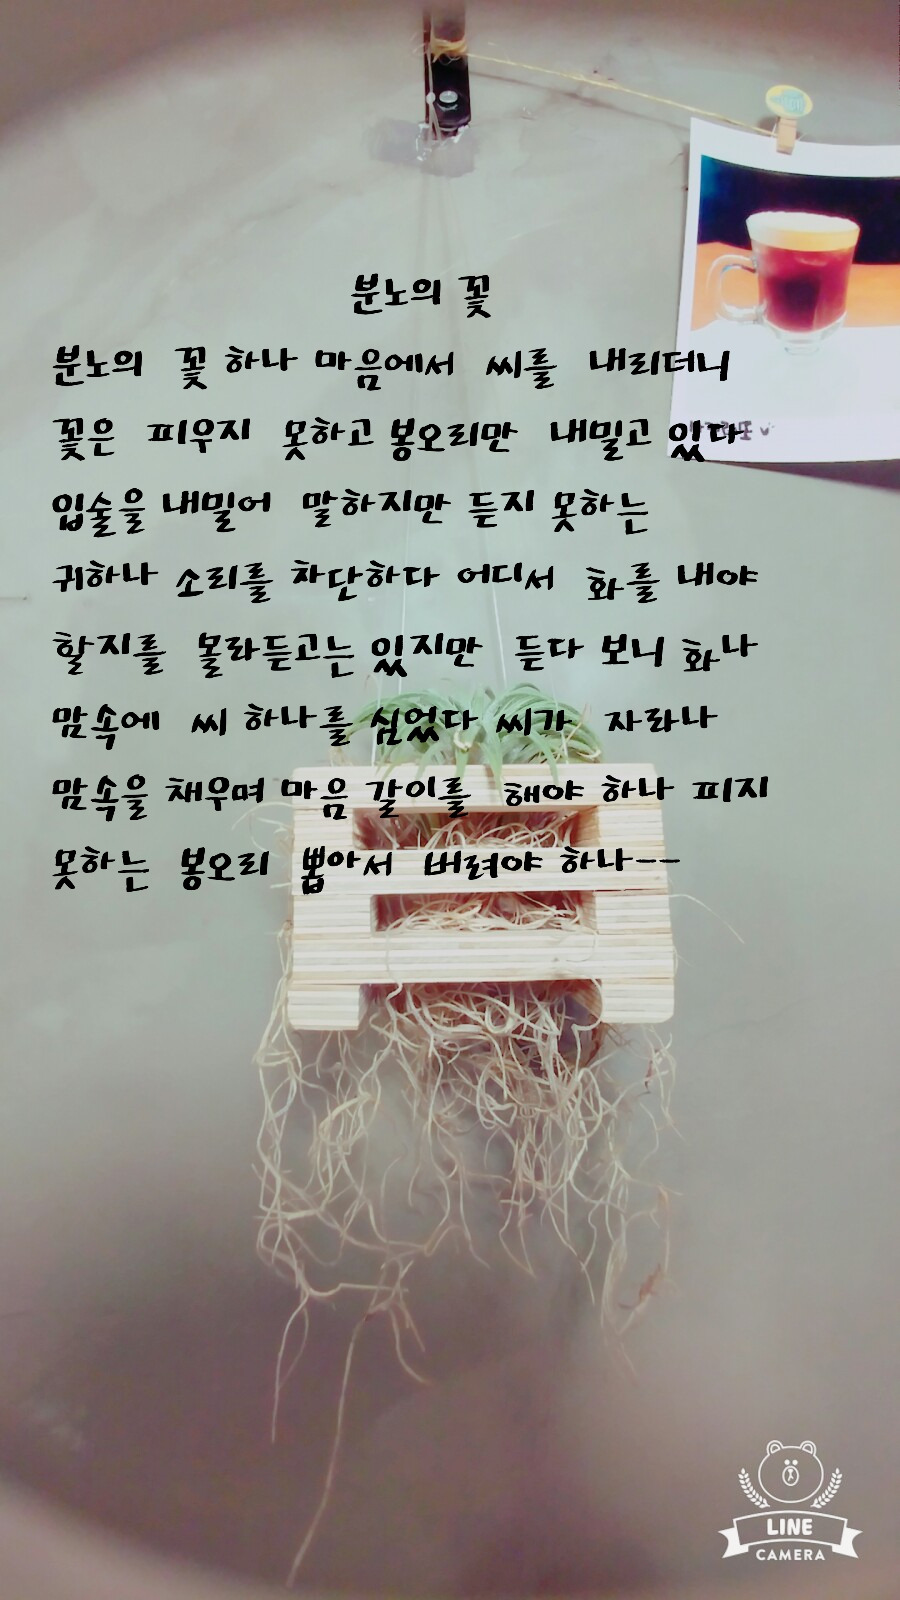 분노의 꽃
분노의 꽃 하나 마음에서 씨를 내리더니
꽃은 피우지 못하고 봉오리만 내밀고 있다
입술을 내밀어 말하지만 듣지 못하는
귀하나 소리를 차단하다 어디서 화를 내야
할지를 몰라듣고는 있지만 듣다 보니 화나
맘속에 씨 하나를 심었다 씨가 자라나
맘속을 채우며 마음 갈이를 해야 하나 피지
못하는 봉오리 뽑아서 버려야 하나--
LINE
CAMERA